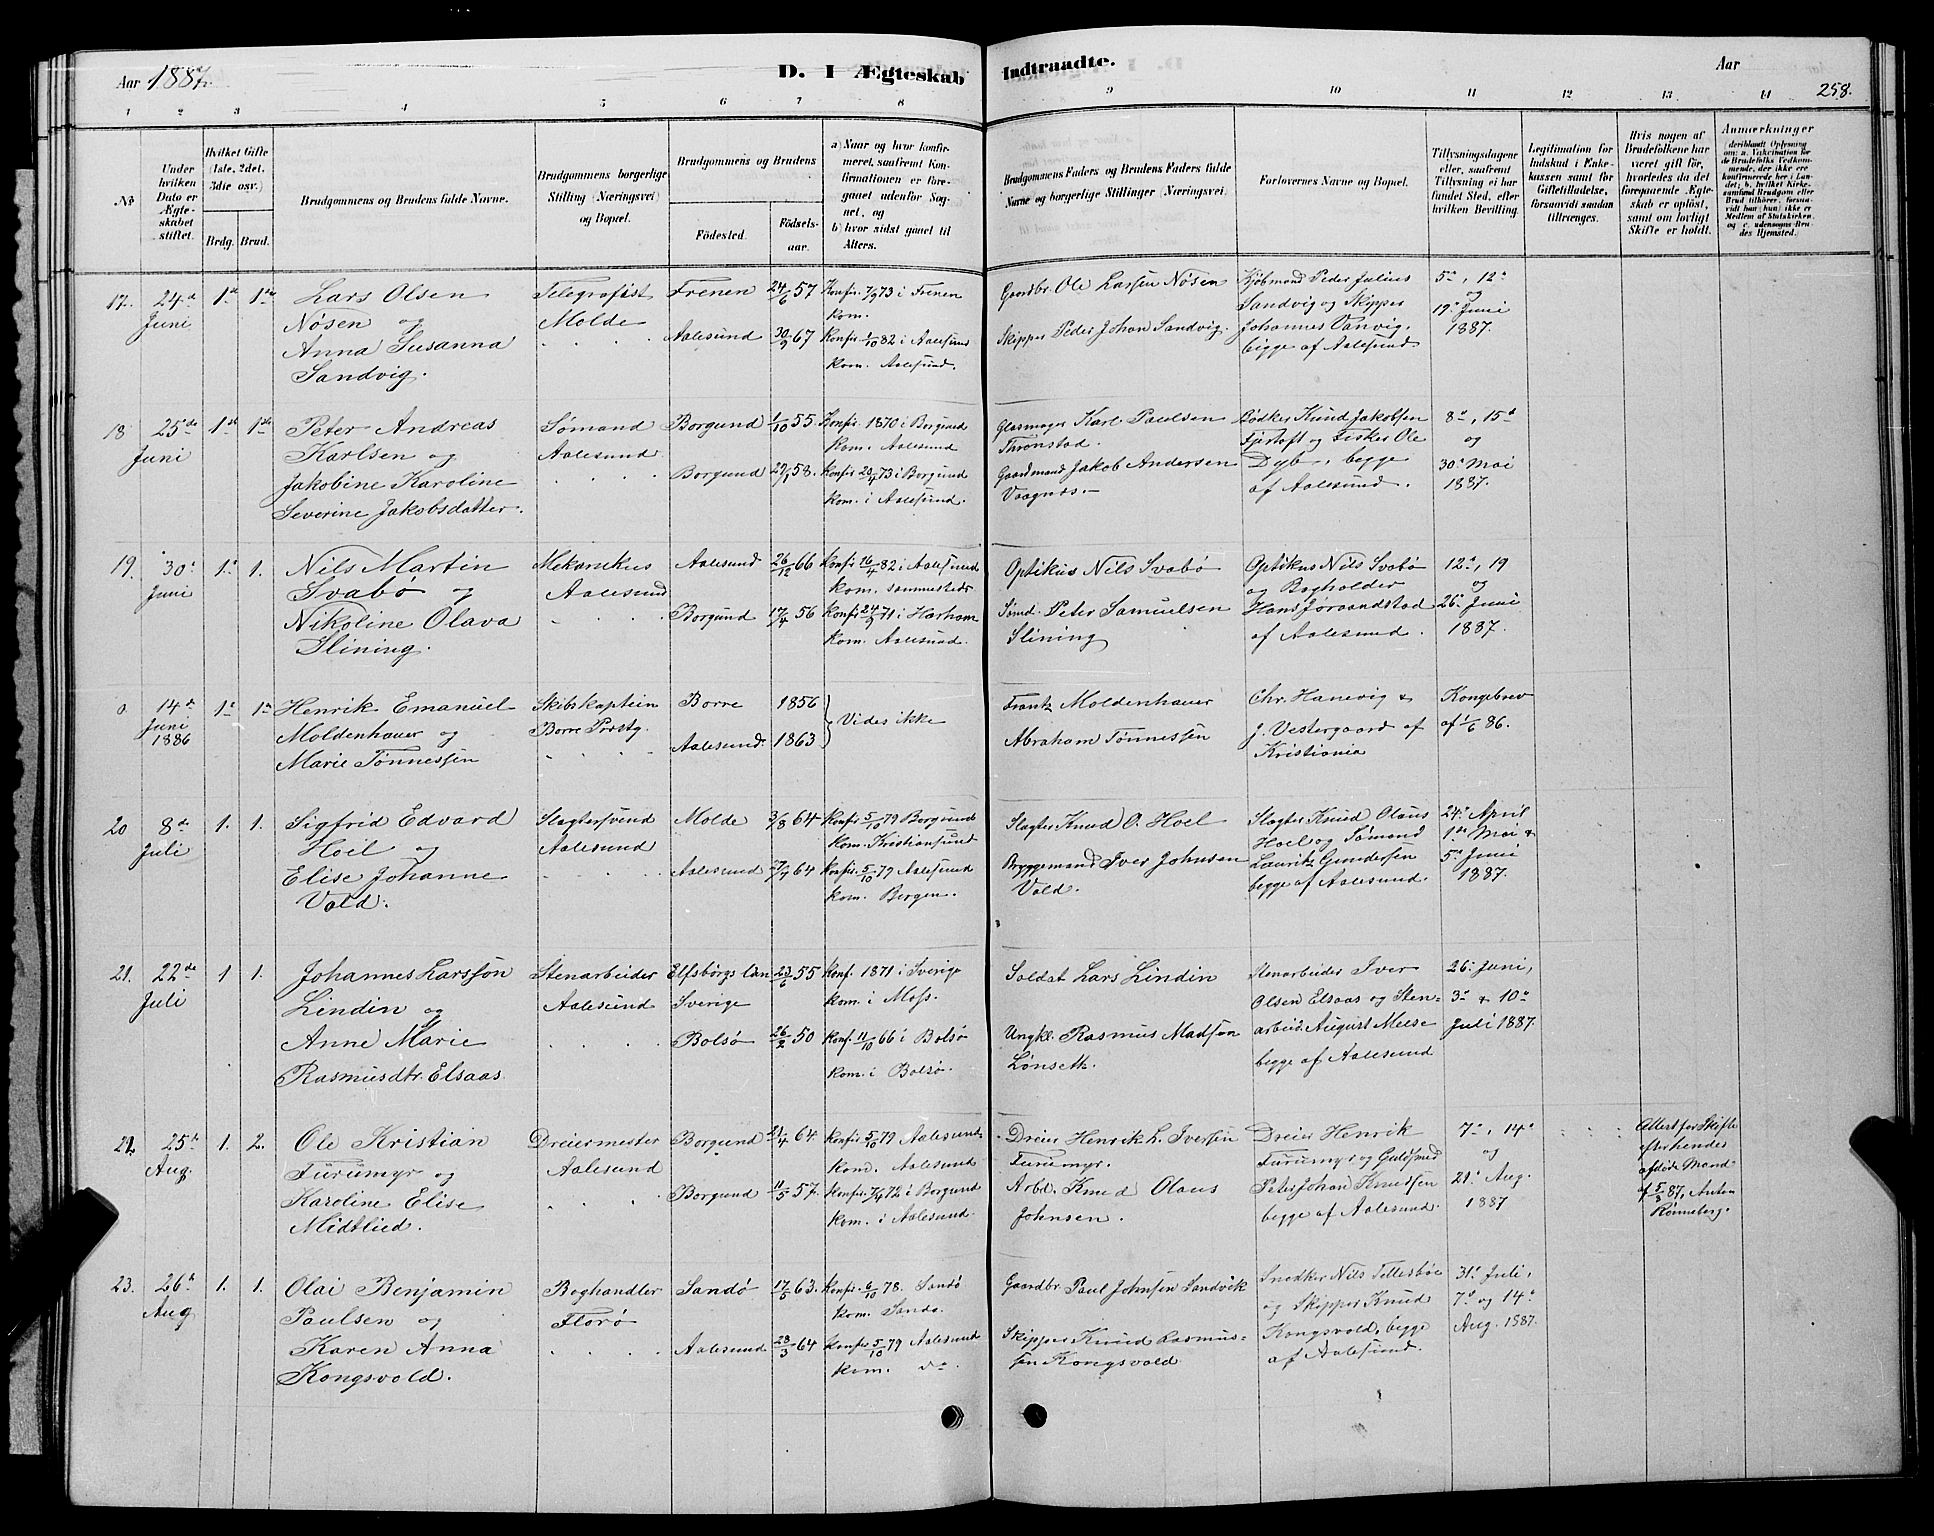 Aar 1887.
D. I Ægteskab Indtraadte.
Aar
258.
1 2 3 4 5 6 7 8 9 10 11 12 13 14
No
Under hvilken Dato er Ægteskabet stiftet.
Hvilket Gifte (1ste, 2det, 3die osv.)
Brdg. Brud.
Brudgommens og Brudens fulde Navne.
Brudgommens borgerlige Stilling (Næringsvei) og Bopæl.
Brudgommens og Brudens
Födested.
Födselsaar.
a) Naar og hvor konfirmeret, saafremt Konfirmationen er foregaaet udenfor Sognet, og
b) hvor sidst gaaet til Alters.
Brudgommens Faders og Brudens Faders fulde Navne og borgerlige Stillinger (Næringsvei).
Forlovernes Navne og Bopæl.
Tillysningsdagene eller, saafremt Tillysning ei har fundet Sted, efter hvilken Bevilling.
Legitimation for Indskud i Enkekassen samt for Giftetilladelse, forsaavidt saadan tiltrænges.
Hvis nogen af Brudefolkene har været gift för, hvorledes da det foregaaende Ægteskab er oplöst, samt om lovligt Skifte er holdt.
Anmærkninger
17. 24de Juni 1ste 1ste
Lars Olsen
Nøsen og
Anna Susanna
Sandvig.
Telegrafist
Molde
Frenen 24/6 57
Aalesund 30/9 67
Konfir. 7/9 73 i Frenen
kom.
Konfir. 1/10 82 i Aalesund
kom. Aalesund.
Gaardbr. Ole Larsen Nøsen
Skipper Peder Johan Sandvig.
Kjøbmand Peder Julius
Sandvig og Skipper
Johannes Vanvig,
begge af Aalesund
5te, 12te
og
19de Juni
1887.
18 25de Juni 1ste 1ste
Peter Andreas
Karlsen og
Jakobine Karoline
Severine Jakobsdatter.
Sømand
Aalesund
Borgund 1/10 55
Borgund 29/1 58.
Konfir. 1870 i Borgund
Kom. Aalesund
Konfir. 20/4 73 i Borgund
kom. i Aalesund.
Glasmager Karl Paulsen
Thronstad.
Gaardmand Jakob Andersen
Vaagnæs.
Bødker Knud Jakobsen
Fjørtoft og Fisker Ole
Dyb, begge
af Aalesund.
8de, 15de
og
30te Mai
1887.
19. 30te Juni 1. 1.
Nils Martin
Svabø og
Nikoline Olava
Slining.
Mekanikus
Aalesund
Aalesund 26/12 66
Borgund 17/4 56
Konfir 16/4 82 i Aalesund
kom. sammesteds
Konfir 24/9 71 i Harham
kom. Aalesund.
Optikus Nils Svabø
Peter Samuelsen
Slining
Optikus Nils Svabø
og Bogholder
Hans Jøraandstad
af Aalesund.
12te, 19
og
26. Juni
1887.
0 14de Juni 1886 1ste 1ste
Henrik Emanuel
Moldenhauer og
Marie Tønnessen
Skibskaptein
Borre Prstg.
Borre 1856
Aalesund 1863
Vides ikke
Frantz Moldenhauer
Abraham Tønnessen
Chr. Hanevig &
J. Vestergaard af
Kristiania
Kongebrev
af 1/6 86.
20 8de Juli 1. 1.
Sigfrid Edvard
Hoel og
Elise Johanne
Vold.
Slagtersvend
Aalesund
Molde 3/8 64
Aalesund 64
Konfir 5/10 79 Borgund
kom. Kristiansund
Konfir. 5/10 79 Aalesund
kom. Bergen.
Slagter Knud O. Hoel
Bryggemand Iver Johnsen
Vold.
Slagter Knud Olaus
Hoel og Sømand
Lauritz Gundersen
begge af Aalesund.
24de April
1ste Mai &
5te Juni
1887.
21. 22de Juli 1 1.
Johannes Larsson
Lindin og
Anne Marie
Rasmusdtr. Elsaas
Stenarbeider
Aalesund
Elfsborgs Län 23/6 55
Sverige
Bolsø 26/2 50
Konf. 1871 i Sverige
kom. i Moss.
Konf. 11/10 66 i Bolsø
kom. i Bolsø.
Soldat Lars Lindin
Ungkl. Rasmus Madsen
Lønseth.
Stenarbeider Iver
Olsen Elsaas og Sten-
arbeid. August Meese
begge af Aalesund
26. Juni,
3de & 10de
Juli 1887.
22 25de Aug. 1. 2.
Ole Kristian
Furumyr og
Karoline Elise
Midtlied.
Dreiermester
Aalesund
Borgund 21/4 64
Borgund 11/5 57.
Konfir 5/10 79 Aalesund
kom. Aalesund
Konfir. 7/4 72 i Borgund
kom. i Aalesund.
Dreier Henrik L. Iversen
Furumyr.
Arbd. Knud Olaus
Johnsen.
Dreier Henrik
Furumyr og Guldsmed
Peter Johan Knudsen
begge af Aalesund.
7de, 14de
og
21. Aug.
1887
Attest for Skifte
efter hendes
afdøde Mand
af 5/3 87, Anton
Rønneberg.
23. 26de Aug 1. 1.
Olai Benjamin
Paulsen og
Karen Anna
Kongsvold.
Boghandler
Florø
Sandø 17/5 63.
Aalesund 23/3 64
Konfir 6/10 78. Sandø
kom. Sandø.
Konfir 5/10 79 Aalesund
kom. do.
Gaardbr. Paul Johnsen Sandvik
Skipper Knud Rasmus-
sen Kongsvold
Snedker Nils Tellesbøe
og Skipper Knud
Kongsvold, begge
af Aalesund.
31te Juli,
7de og 14de
Aug. 1887.